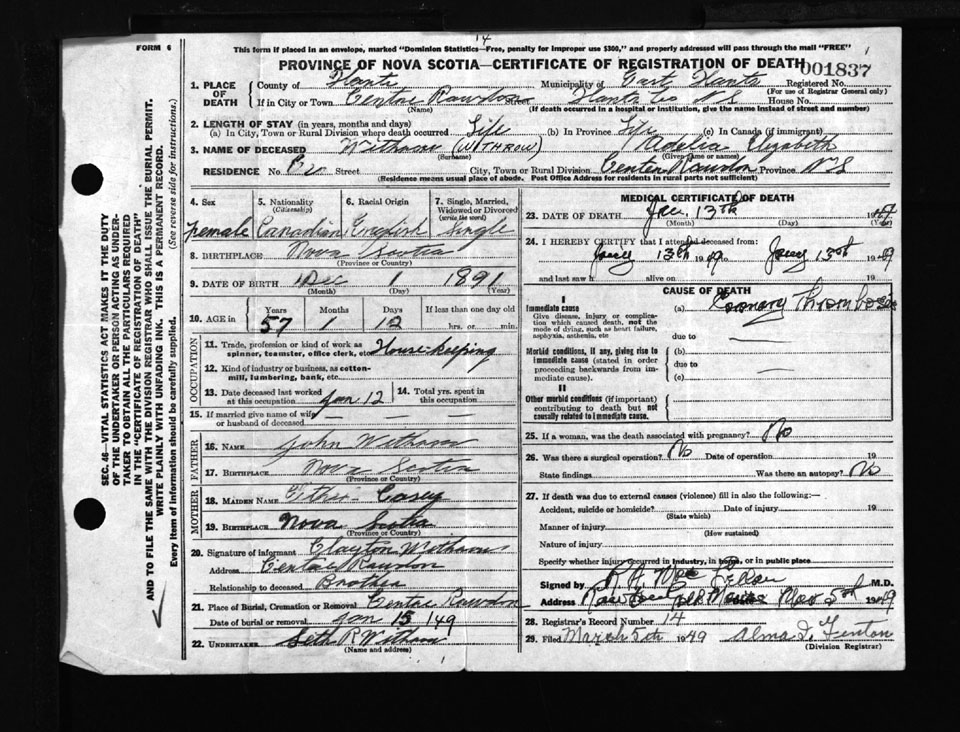 14
FORM 6
This form if placed in an envelope, marked "Dominion Statistics—Free, penalty for improper use $300," and properly addressed will pass through the mail "FREE"
PROVINCE OF NOVA SCOTIA—CERTIFICATE OF REGISTRATION OF DEATH
001837
1. PLACE OF DEATH
County of Hants Municipality of East Hants Registered No.
(For use of Registrar General only)
If in City or Town Centre Rawdon Street Hants Co N S House No.
(Name) (If death occurred in a hospital or institution, give the name instead of street and number)
2. LENGTH OF STAY (in years, months and days)
(a) In City, Town or Rural Division where death occurred Life (b) In Province Life (c) In Canada (if immigrant)
3. NAME OF DECEASED Withrow (WITHROW) Adelia Elizabeth
(Surname) (Given name or names)
RESIDENCE No. Street City, Town or Rural Division Center Rawdon Province N S
(Residence means usual place of abode. Post Office Address for residents in rural parts not sufficient)
4. Sex
Female
5. Nationality
(Citizenship)
Canadian
6. Racial Origin
English
7. Single, Married, Widowed or Divorced
(write the word)
Single
8. BIRTHPLACE Nova Scotia
(Province or Country)
9. DATE OF BIRTH Dec 1 1891
(Month) (Day) (Year)
10. AGE in
Years Months Days If less than one day old
57 1 12 hrs. or min.
OCCUPATION
11. Trade, profession or kind of work as spinner, teamster, office clerk, etc. House-keeping
12. Kind of industry or business, as cotton-mill, lumbering, bank, etc.
13. Date deceased last worked at this occupation Jan 12
14. Total yrs. spent in this occupation
15. If married give name of wife or husband of deceased
FATHER
16. NAME John Withrow
17. BIRTHPLACE Nova Scotia
(Province or Country)
MOTHER
18. MAIDEN NAME Casey
19. BIRTHPLACE Nova Scotia
(Province or Country)
20. Signature of informant Clayton Withrow
Address Centre Rawdon
Relationship to deceased Brother
21. Place of Burial, Cremation or Removal Centre Rawdon
Date of burial or removal Jan 15 / 49
22. UNDERTAKER Seth R Withrow
(Name and address)
MEDICAL CERTIFICATE OF DEATH
23. DATE OF DEATH Jan. 13th 1949
(Month) (Day) (Year)
24. I HEREBY CERTIFY that I attended deceased from:
13th 1949 13th 1949
and last saw h alive on 19
CAUSE OF DEATH
I
Immediate cause (a) Coronary Thrombosis
Give disease, injury or complication which caused death, not the mode of dying, such as heart failure, asphyxia, asthenia, etc
due to
Morbid conditions, if any, giving rise to immediate cause (stated in order proceeding backwards from immediate cause).
(b)
due to
(c)
II
Other morbid conditions (if important) contributing to death but not causally related to immediate cause.
25. If a woman, was the death associated with pregnancy? No
26. Was there a surgical operation? No Date of operation 19
State findings Was there an autopsy? No
27. If death was due to external causes (violence) fill in also the following:—
Accident, suicide or homicide? Date of injury 19
(State which)
Manner of injury
(How sustained)
Nature of injury
Specify whether injury occurred in industry, in home, or in public place
Signed by M.D.
Address 1949
28. Registrar's Record Number 14
29. Filed March 5th 1949 Alma D. Fenton
(Division Registrar)
SEC. 46—VITAL STATISTICS ACT MAKES IT THE DUTY
OF THE UNDERTAKER OR PERSON ACTING AS UNDER-
TAKER TO OBTAIN ALL THE PARTICULARS REQUIRED
IN THE "CERTIFICATE OF REGISTRATION OF DEATH"
AND TO FILE THE SAME WITH THE DIVISION REGISTRAR WHO SHALL ISSUE THE BURIAL PERMIT.
WRITE PLAINLY WITH UNFADING INK. THIS IS A PERMANENT RECORD.
Every item of information should be carefully supplied. (See reverse side for instructions.)